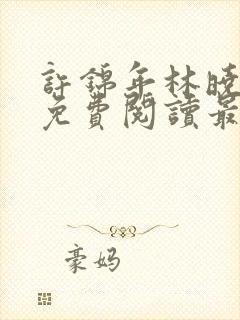 許錦年林曉
免費閱讀最
豪妈